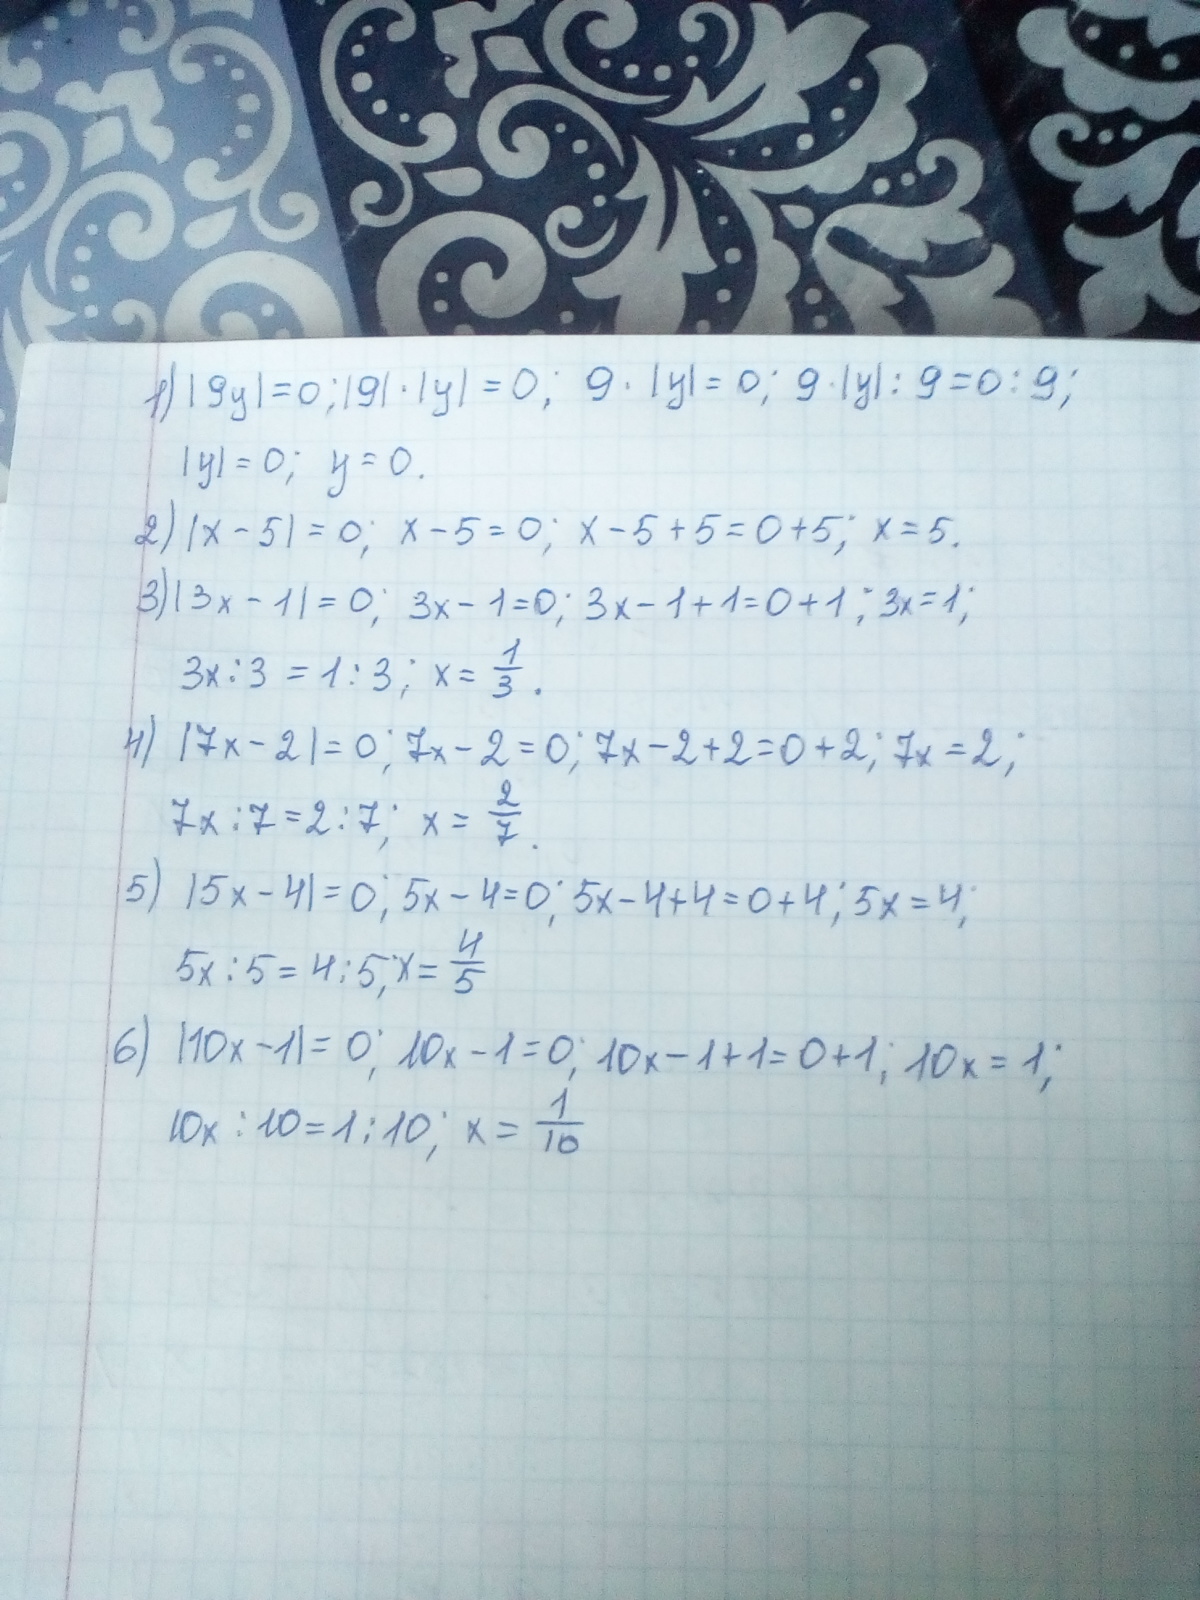 1) |9y|=0; |9|·|y|=0; 9·|y|=0; 9·|y|:9=0:9;
|y|=0; y=0.
2) |x-5|=0; x-5=0; x-5+5=0+5; x=5.
3) |3x-1|=0; 3x-1=0; 3x-1+1=0+1; 3x=1;
3x:3=1:3; x=1/3.
4) |7x-2|=0; 7x-2=0; 7x-2+2=0+2; 7x=2;
7x:7=2:7; x=2/7.
5) |5x-4|=0; 5x-4=0; 5x-4+4=0+4; 5x=4;
5x:5=4:5; x=4/5
6) |10x-1|=0; 10x-1=0; 10x-1+1=0+1; 10x=1;
10x:10=1:10; x=1/10